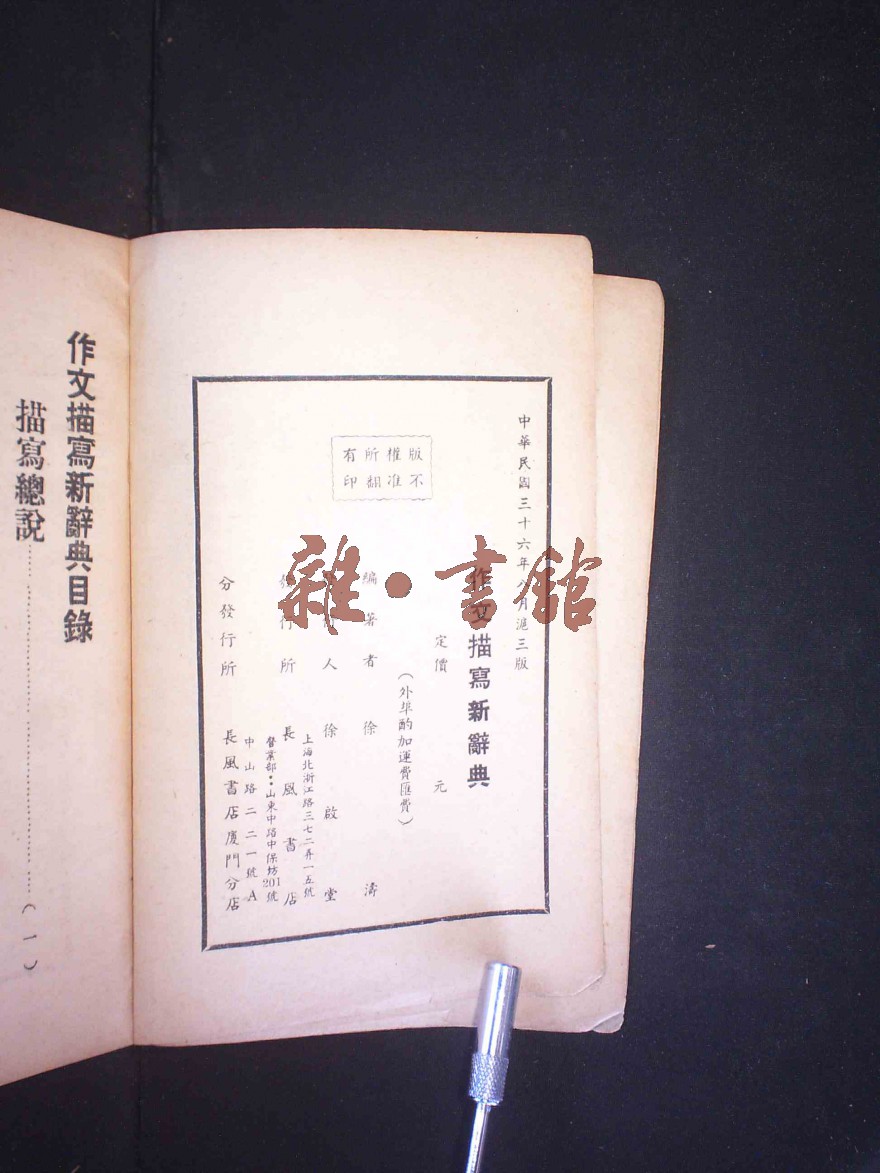 中華民國三十六年八月滬三版
作文描寫新辭典
定價 元
(外埠酌加運費匯費)
版權所有
不准翻印
編著者 徐濤
人 徐啟堂
上海北浙江路三七二弄一五號
發行所 長風書店
營業部：山東中路中保坊201號
中山路二二一號A
分發行所 長風書店廈門分店
作文描寫新辭典目錄
描寫總說……(一)
雜·書館